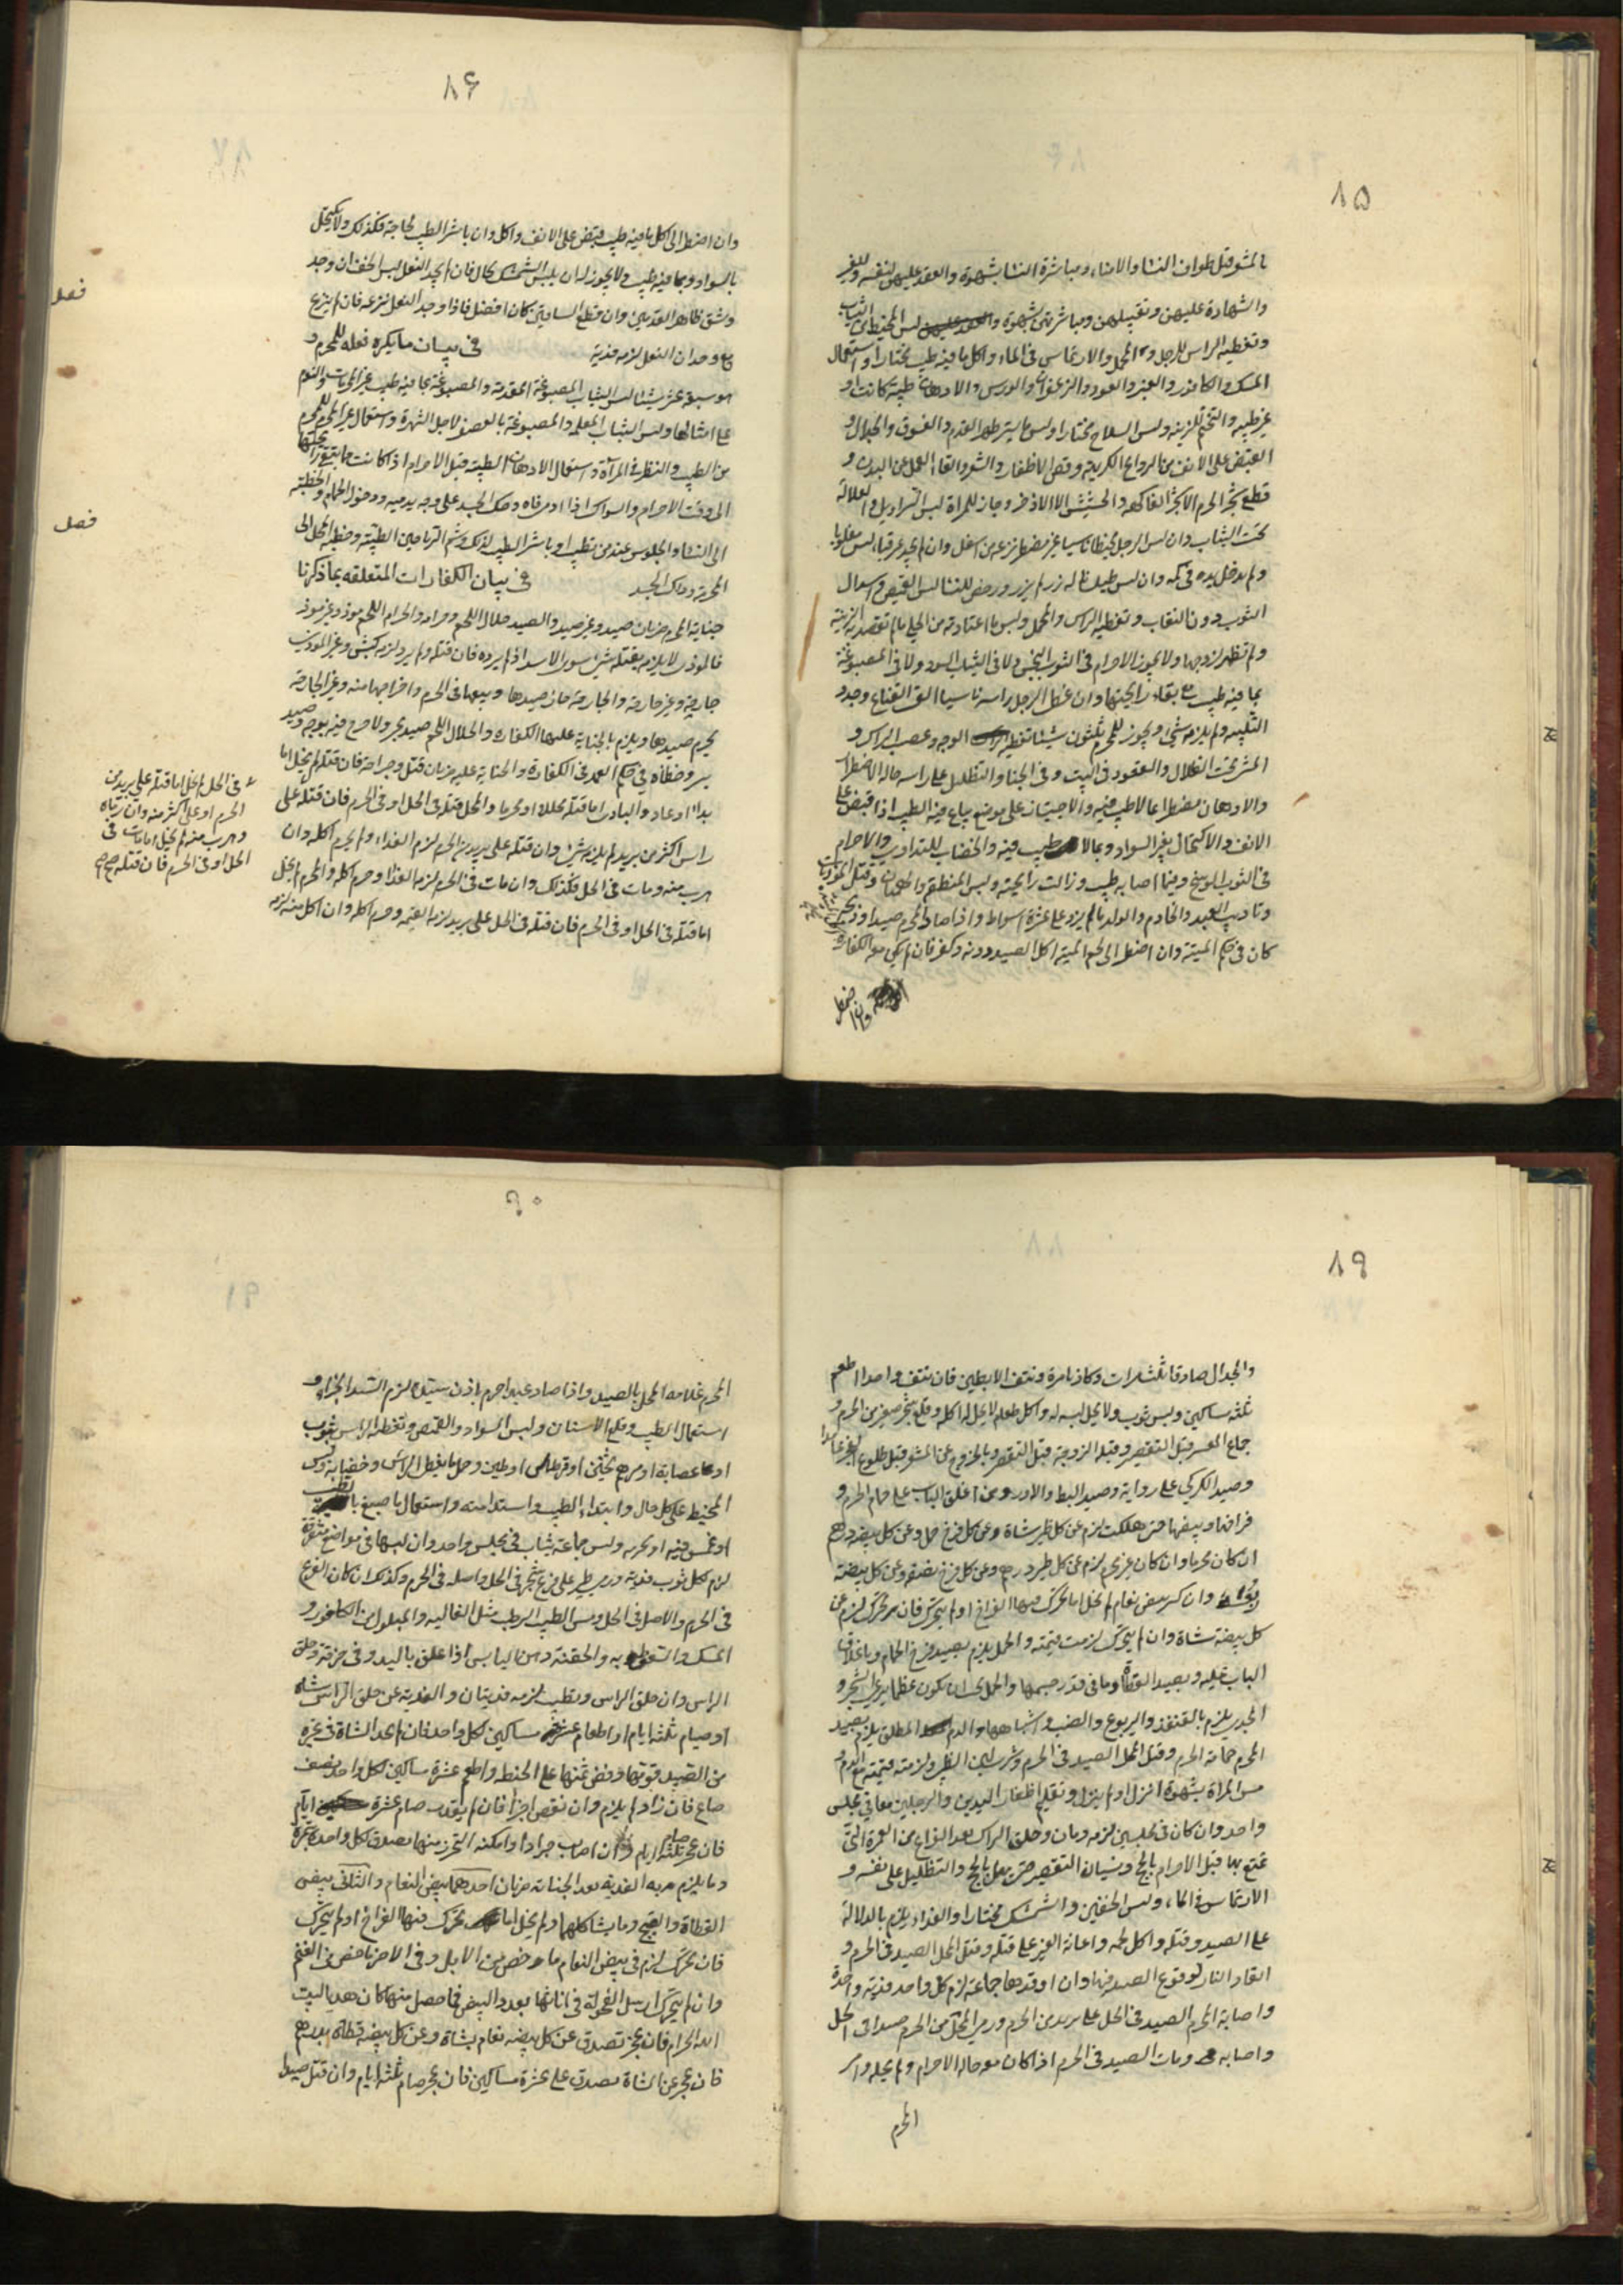 ٨٥
بالمشعر قبل طواف النسا والامناء ومباشرة النسا بشهوة والعقد عليهن لنفسه ولغير
والشهادة عليهن وتقبيلهن ومباشرتهن بشهوة ولبس المخيط من الثياب
وتغطيه الراس للرجل والارتماس فى الماء واكل ما فيه طيب مختارا واستعمال
المسك والكافور والعنبر والعود والزعفران والورس والادهان طيبة كانت او
غير طيبه والتختم للزينه ولبس السلاح مختارا ولبس ما يستر ظهر القدم والفسوق والجدال و
القبض على الانف من الروايح الكريهه وقص الاظفار والشعر والقاء القمل عن البدن و
قطع شجر الحرم الا شجر الفاكهه والحشيش الا الاذخر وجاز للمراة لبس السراويل والغلالة
تحت الثياب وان لبس الرجل مخيطا ناسيا غير مضطر نزعه من اسفل وان لم يجد غير قباء لبس مقلوبا
ولم يدخل يده فى كمه وان لبس طيلسانا له زر لم يزر ورخص للنسا لبس القميص واسدال
الثوب دون النقاب وتغطيه الراس والمحمل ولبس ما اعتادته من الحلى ما لم تقصد به الزينة
ولم تظهر لزوجها ولا يجوز الاحرام فى الثوب النجس ولا فى الثياب السود ولا فى المصبوغة
بما فيه طيب مع بقاء رايحتها وان غطى الرجل راسه ناسيا القى القناع وجدد
التلبيه ولم يلزمه شئ ويجوز للمحرم ثلثون شيئا تغطيه الوجه وعصب الراس و
المشى تحت الظلال والقعود فى البيت وفى الخبا والتظليل على راسه حاله الاضطرار
والادهان مضطرا بما لا طيب فيه والاجتياز على موضع يباع فيه الطيب اذا قبض على
الانف والاكتحال بغير السواد وبما لا طيب فيه والخضاب للتداوى والاحرام
فى الثوب الوسخ وفيما اصابه طيب وزالت رايحته ولبس المنطقه والهميان وقتل الموذيات
وتاديب العبد والخادم والولد ما لم يزد على عشرة اسواط واذا صاد المحرم صيدا وذبحه
كان فى حكم الميتة وان اضطر الى لحم الميته اكل الصيد دونه وكفر فان لم يكن معه الكفارة
وان اضطر
٨۶
وان اضطر الى اكل ما فيه طيب قبض على الانف واكل وان باشر الطيب لحاجة فكذلك ولا يكتحل
بالسواد وبما فيه طيب ولا يجوز له ان يلبس الشمشك بحال فان لم يجد النعل لبس الخف ان وجد
وشق ظاهر القدمين وان قطع الساقين كان افضل فاذا وجد النعل نزعه فان لم ينزع
مع وجدان النعل لزمه فدية فى بيان ما يكره فعله للمحرم و
فصل
هو سبعة عشر شيئا لبس الثياب المصبوغة المقدمة والمصبوغة بما فيه طيب غير المحرمات والنوم
على امثالها ولبس الثياب المعلمه والمصبوغة بالعصفر لاجل الشهرة واستعمال غير المحرم للمحرم
من الطيب والنظر فى المرآة واستعمال الادهان الطيبة قبل الاحرام اذا كانت مما تبقى رايحتها
الى وقت الاحرام والسواك اذا ادمى فاه وحك الجسد على وجه يدميه ودخول الحمام والخطبة
الى النسا والجلوس عند من تطيب او باشر الطيب لذلك وشم الرياحين الطيبة وخطبه المحل الى
المحرمة ودلك الجسد فى بيان الكفارات المتعلقه بما ذكرنا
فصل
جناية المحرم ضربان صيد وغير صيد والصيد حلال اللحم وحرامه والحرام اللحم موذ وغير موذ
فالموذى لا يلزم بقتله شئ سوى الاسد اذا لم يرده فان قتله ولم يرد لزمه كبش وغير الموذى
جارحة وغير جارحة والجارحة جاز صيدها وبيعها فى الحرم واخراجها منه وغير الجارحة
يحرم صيدها ويلزم بالجناية عليها الكفارة والحلال اللحم صيد بحر ولا حرج فيه بوجه وصيد
بر وخطاه فى حكم العمد فى الكفارة والجناية عليه ضربان قتل وجراحة فان قتله لم يخل اما
بدا او عاد والبادى اما قتله محلا او محرما والمحل قتله فى الحل او فى الحرم فان قتله على
راس اكثر من بريد لم يلزمه شئ وان قتله على بريد من الحرم لزم الفداء ولم يحرم اكله وان
هرب منه ومات فى الحل فكذلك وان مات فى الحرم لزمه الفداء وحرم اكله والمحرم لم يخل
اما قتله فى الحل او فى الحرم فان قتله فى الحل على بريد لزمه القيمه وحرم اكله وان اكل منه لزمه
فى الحل لم يخل اما قتله على بريد من
الحرم او على اكثر منه وان رماه
وهرب منه لم يخل اما مات فى
الحل او فى الحرم فان قتله صح
٨٩
والجدال صادقا ثلث مرات وكاذبا مرة ونتف الابطين فان نتف واحدا اطعم
ثلثه ساكين ولبس ثوب ولا يحل لبسه له واكل طعام لا يحل له اكله وقلع شجر صغير من الحرم و
جماع المعتمر قبل التقصير وقبله الزوجة قبل التقصير وبالخروج من المشعر قبل طلوع الفجر عامدا
وصيد الكركى على رواية وصيد البط والاوز ومن اغلق الباب على حمام الحرم و
فراخها وبيضها حتى هلكت لزم عن كل طير شاة وعن كل فرخ حمل وعن كل بيضه درهم
ان كان محرما وان كان غير محرم لزم عن كل طير درهم وعن كل فرخ نصفه وعن كل بيضة
ربعه وان كسر بيض نعام لم يخل اما تحرك فيها الفراخ او لم يتحرك فان تحرك لزم عن
كل بيضة شاة وان لم يتحرك لزمت قيمته والحمل يلزم بصيد فرخ الحمام وباغلاق
الباب عليه وبصيد القطاة وما فى قدر جسمها والحمل ان يكون عظما يرعى الشجر و
الجدى يلزم بالقنفذ واليربوع والضب واشباهها والدم المطلق يلزم بصيد
المحرم حمامة الحرم وقتل المحل الصيد فى الحرم وشرب لبن الظبى ولزمته قيمته مع الدم و
مس المراة بشهوة انزل او لم ينزل وتقليم اظفار اليدين والرجلين معا فى مجلس
واحد وان كان فى مجلسين لزمه دمان وحلق الراس بعد الفراغ من العمرة التى
تمتع بها قبل الاحرام بالحج ونسيان التقصير حتى يهل بالحج والتظليل على نفسه و
الارتماس فى الماء ولبس الخفين والشمشك مختارا والفداء يلزم بالدلالة
على الصيد وقتله واكل لحمه واعانة الغير على قتله وقتل المحل الصيد فى الحرم و
ايقاد النار لوقوع الصيد فيها وان اوقدها جماعة لزم كل واحد فدية واحدة
واصابة المحرم الصيد فى الحل على بريد من الحرم ورمى المحل من الحرم صيدا فى الحل
واصابه ومات الصيد فى الحرم اذا كان هو حالة الاحرام ولم يحله وامر
المحرم
٩٠
المحرم غلامه المحل بالصيد واذا صاد عبد احرم باذن سيده لزم السيد الجزاء و
استعمال الطيب وقلع الاسنان ولبس السواد والقميص وتغطيه الراس بثوب
او عصابة او مرهم ثخين او قرطاس او طين وحمل ما يغطى الراس وخضابه ولبس
المخيط على كل حال وابتداء الطيب واستدامته واستعمال ما صبغ بالطيب
او غمس فيه او بخر به ولبس جماعة ثياب فى مجلس واحد وان لبسها فى مواضع متفرقة
لزم لكل ثوب فدية ورمى طير على فرع شجر فى الحل واصله فى الحرم وكذلك ان كان الفرع
فى الحرم والاصل فى الحل ومس الطيب الرطب مثل الغاليه والمبلول من الكافور و
المسك والتسعط به والحقنة ومس اليابس اذا علق باليد وفى خرقة وحلق
الراس وان حلق الراس وتطيب لزمه فديتان والفدية عن حلق الراس شاه
او صيام ثلثه ايام او اطعام مساكين لكل واحد فان لم يجد الشاة فى غيره
من الصيد قومها وفض ثمنها على الحنطه واطعم عشرة مساكين لكل واحد نصف
صاع فان زاد لم يلزم وان نقص اجزا فان لم يقدر صام عشرة ايام
فان عجز صام ثلثه ايام وان اصاب جرادا وامكنه التحرز منها تصدق لكل واحدة بتمرة
وما يلزم به الفدية بعد الجناية ضربان احدهما بيض النعام والثانى بيض
القطاة والقبج وما يشاكلها ولم يخل اما تحرك فيها الفراخ او لم يتحرك
فان تحرك لزم فى بيض النعام ماخض من الابل وفى الاخر ماخض من الغنم
وان لم يتحرك ارسل الفحولة فى اناثها بعدد البيض فما حصل منها كان هديا لبيت
الله الحرام فان عجز تصدق عن كل بيضه نعام بشاة وعن كل بيضه قطاة بدرهم
فان عجز عن الشاة تصدق على عشرة مساكين فان عجز صام ثلثه ايام وان قتل صيدا